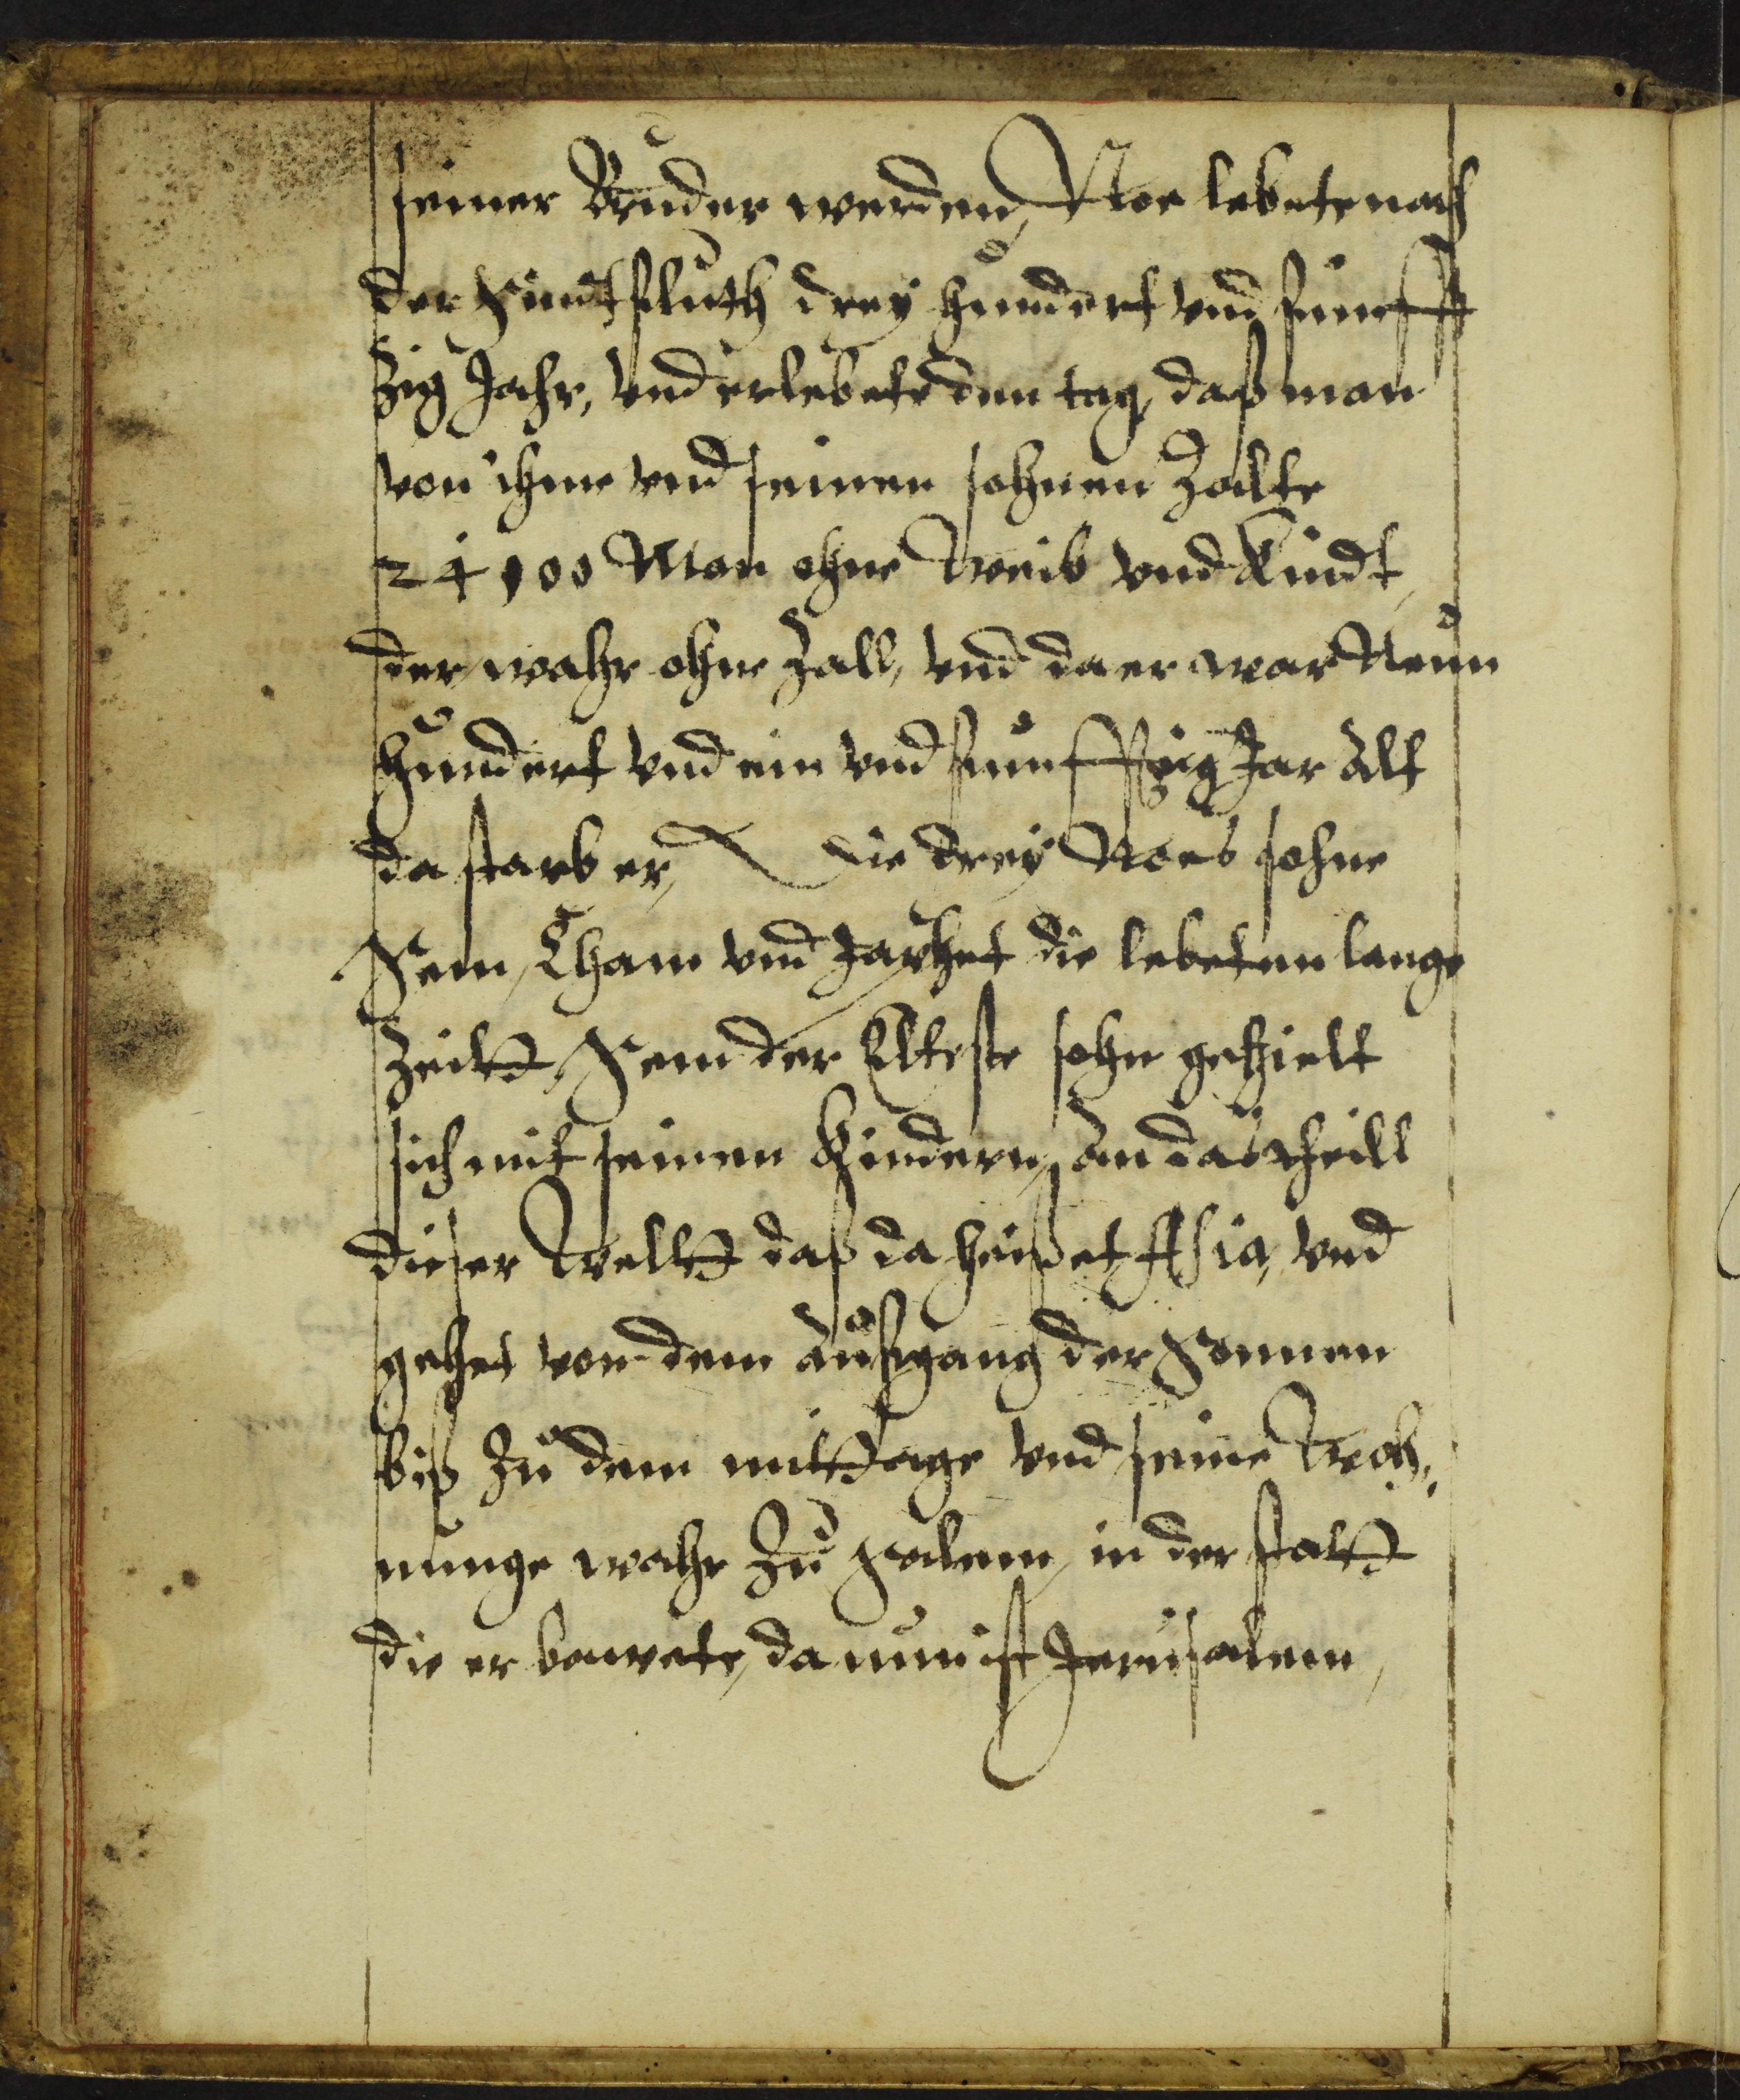 seiner Bruder werden, Noe lebete nach
der Sündtfluth drey hundert vnd fünff
zig Jahr, vnd erlebete den tag, daß man
von ihme vnd seinen sohnen Zalte
24100 Man ohne Weib vnd Kindt,
der wahr ohne Zall, vnd da er war Neun
hundert vnd ein vnd fünffzig Jar Alt
da starb er, Die drey Noes sohne
Sem, Cham vnd Japhet die lebeten lange
Zeitt, Sem der Elteste sohn gehielt
sich mit seinen Kindern, an das theill
dieser Weltt daß da heisset Asia, vnd
gehet von dem Aufgang der Sonnen
biß Zu dem mittage vnd seine Woh,
nunge wahr Zu Salem, in der statt
die er bawete, da nun ist Jerusalem,